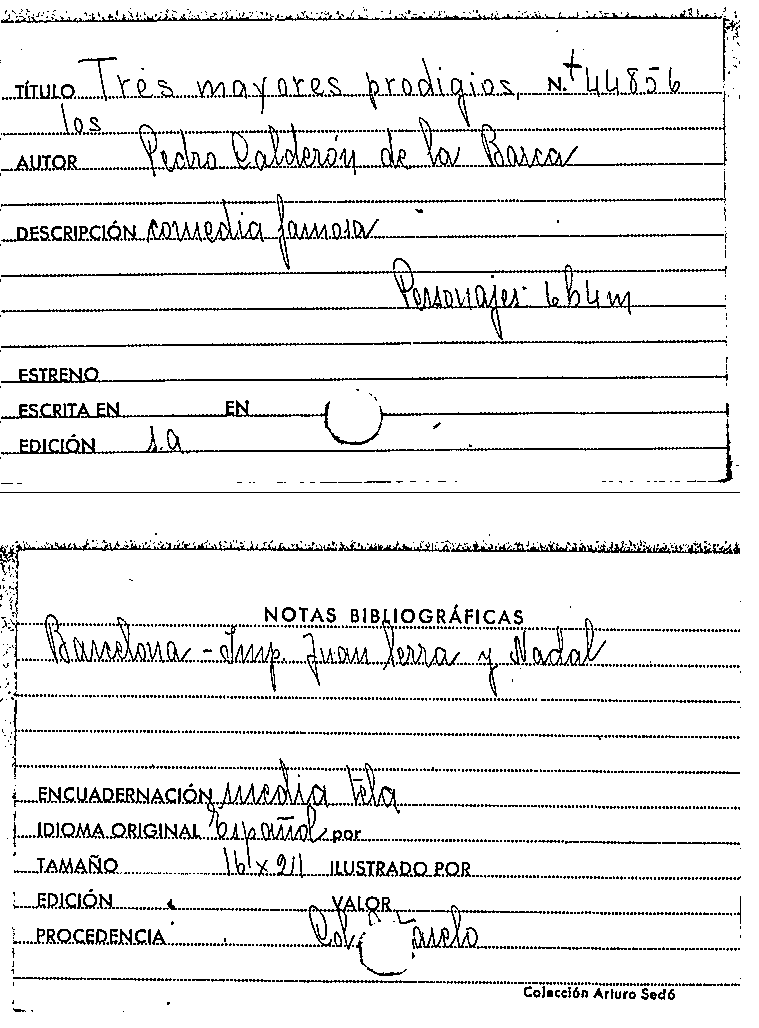 TÍTULO Tres mayores prodigios, N.t 44856
los
AUTOR Pedro Calderón de la Barca
DESCRIPCIÓN comedia famosa
Personajes: 6h4m
ESTRENO
ESCRITA EN EN
EDICIÓN s.a
NOTAS BIBLIOGRÁFICAS
Barcelona - Imp. Juan Serra y Nadal
ENCUADERNACIÓN media tela
IDIOMA ORIGINAL Español por
TAMAÑO ILUSTRADO POR
EDICIÓN VALOR
PROCEDENCIA Col.
Colección Arturo Sedó